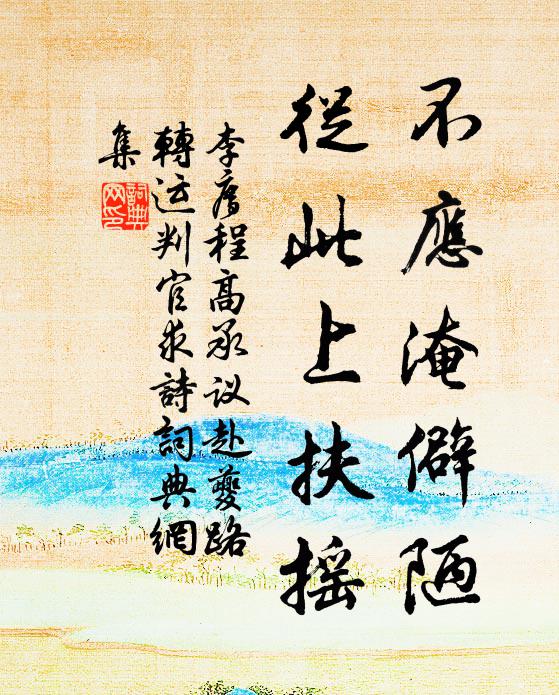 不應淹僻陋
從此上扶摇
李廌程高承议赴夔路
轉运判官求詩詞典網
集
詞典
网印